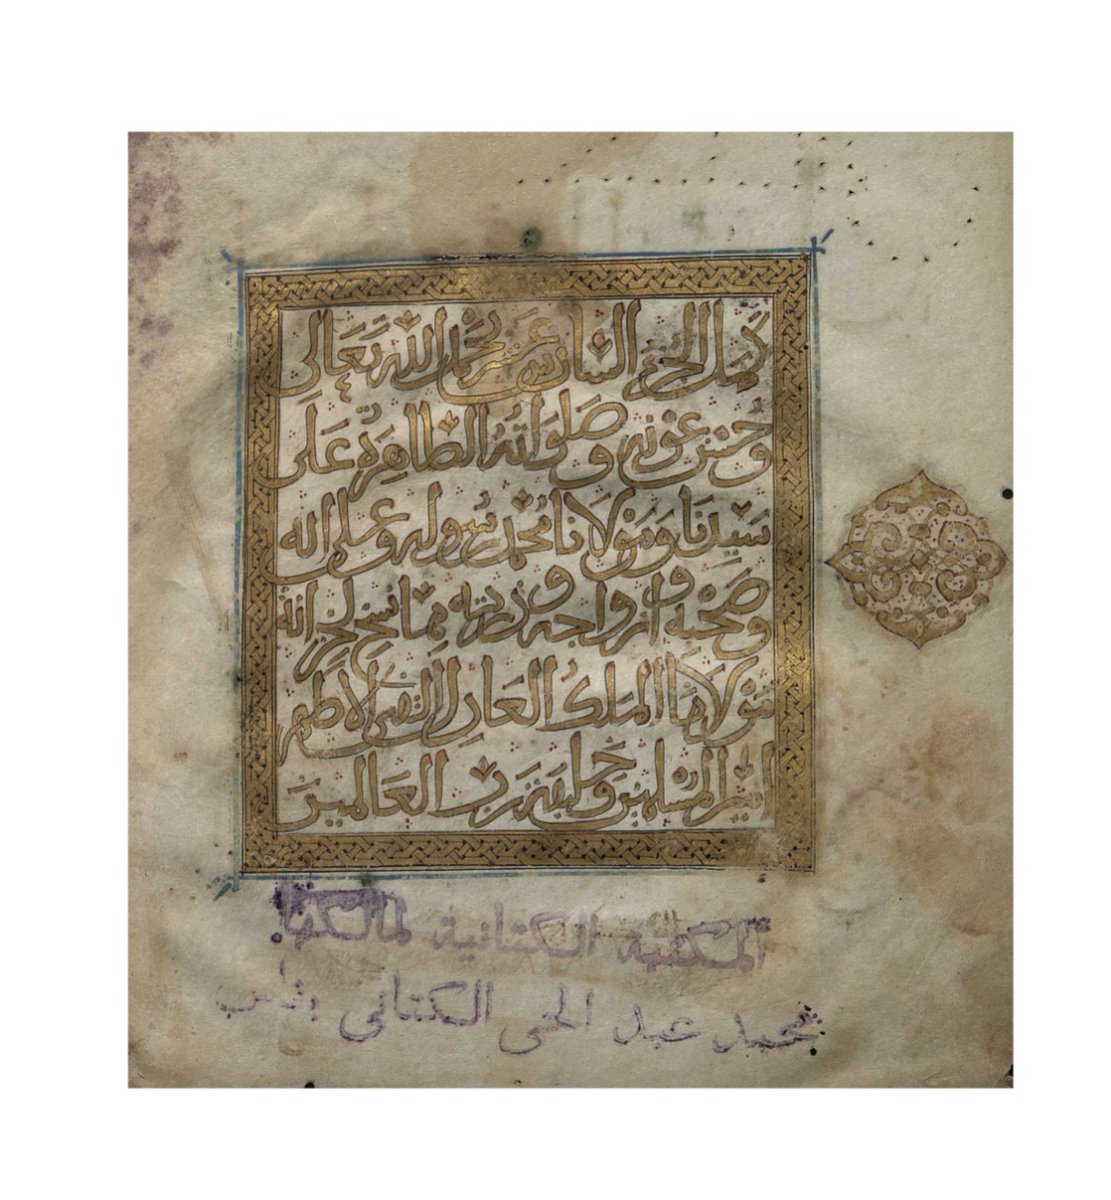 كمل الجزء السادس عشر بحمد الله تعالى
وحسن عونه وصلواته الطاهرة على
سيدنا ومولانا محمد رسوله وعلى اله
وصحبه وازواجه وذريته مما نسخ لخزانة
مولانا الملك العادل التقي الاطهر
امير المسلمين وخليفة رب العالمين
المكتبة الكتانية لمالكها
محمد عبد الحي الكتاني بفاس